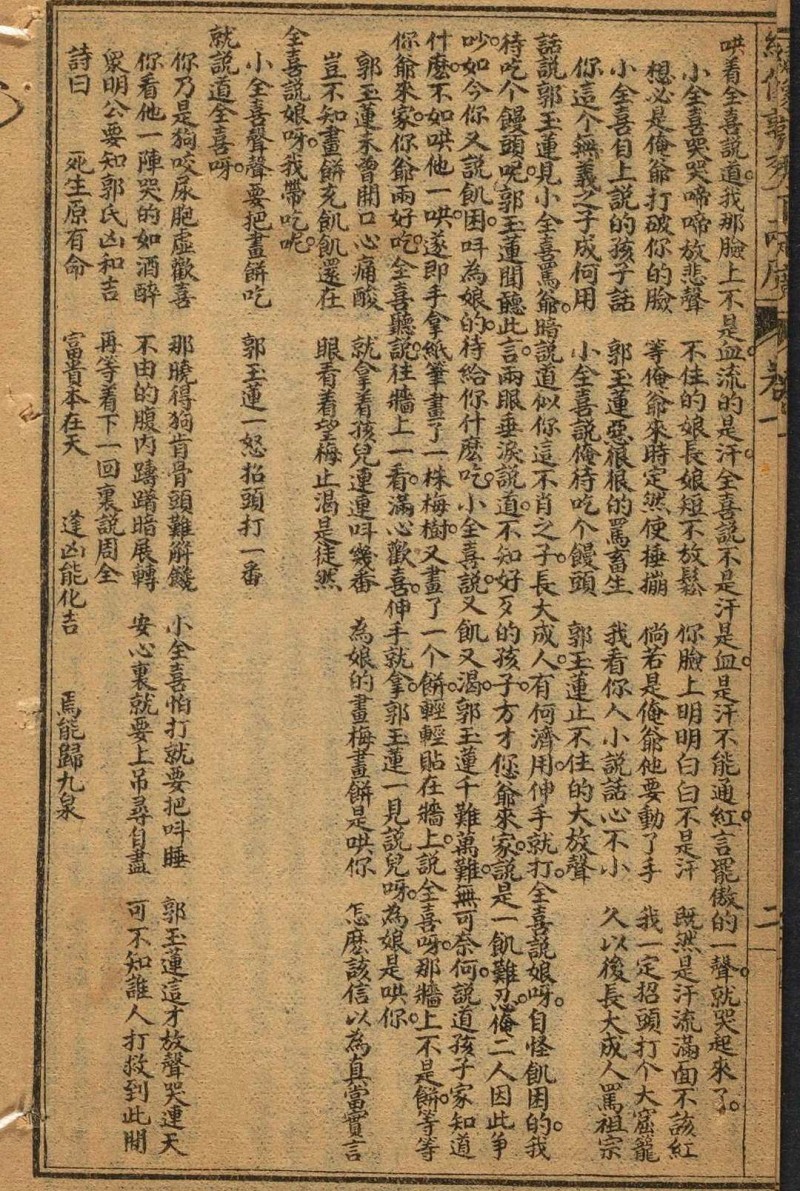 哄着全喜説道。我那臉上不是血流的是汗。全喜説不是汗是血。是汗不能通紅。言罷傲的一聲就哭起來了。
小全喜哭哭啼啼放悲聲　不住的娘長娘短不放鬆　你臉上明明白白不是汗　既然是汗流滿面不該紅
想必是俺爺打破你的臉　等俺爺來時定然使捶搠　倘若是俺爺他要動了手　我一定招頭打个大窟籠
小全喜自上説的孩子話　郭玉蓮惡狠狠的罵畜生　我看你人小説話心不小　久以後長大成人罵祖宗
你這个無義之子成何用　小全喜説俺待吃个饅頭　郭玉蓮止不住的大放聲
話説郭玉蓮見小全喜罵爺。暗説道似你這不肖之子。長大成人。有何濟用。伸手就打。全喜説娘呀。自怪飢困的。我
待吃个饅頭呢。郭玉蓮聞聽此言。兩眼垂淚。説道。不知好歹的孩子。方才您爺來家。説是一飢難忍。俺二人因此爭
吵。如今你又説飢困。呌為娘的。待給你什麽吃。小全喜説。又飢又渴。郭玉蓮千難萬難。無可奈何。説道孩子家知道
什麽。不如哄他一哄。遂即手拿紙筆。畫了一株梅樹。又畫了一个餅。輕輕貼在牆上。説全喜呀。那牆上不是餅。等等
你爺來家。你爺兩好吃。全喜聽説。往牆上一看。滿心歡喜。伸手就拿。郭玉蓮一見。説兒呀。為娘是哄你。
郭玉蓮未曾開口心痛酸　就拿着孩兒連連呌幾番　為娘的畫梅畫餅是哄你　怎麽該信以為真當實言
豈不知畫餅充飢飢還在　眼看着望梅止渴是徒然
全喜説娘呀。我帶吃呢。
小全喜聲聲要把畫餅吃　郭玉蓮一怒招頭打一番
就説道全喜呀。
你乃是狗咬尿胞虛歡喜　那曉得狗肯骨頭難解饞　小全喜怕打就要把呌睡　郭玉蓮這才放聲哭連天
你看他一陣哭的如酒醉　不由的腹内躊躇暗展轉　安心裏就要上吊尋自盡　可不知誰人打救到此間
衆明公要知郭氏凶和吉　再等着下一回裏説周全
詩曰　死生原有命　富貴本在天　逢凶能化吉　焉能歸九泉
卷一
二